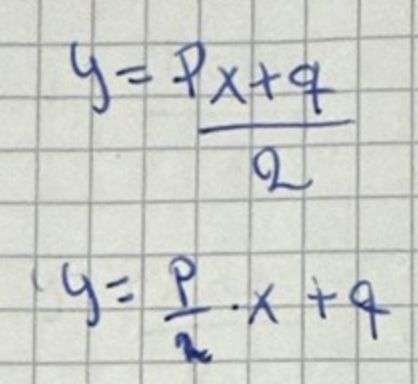 y = Px+q
2
y = P/2 · x + q